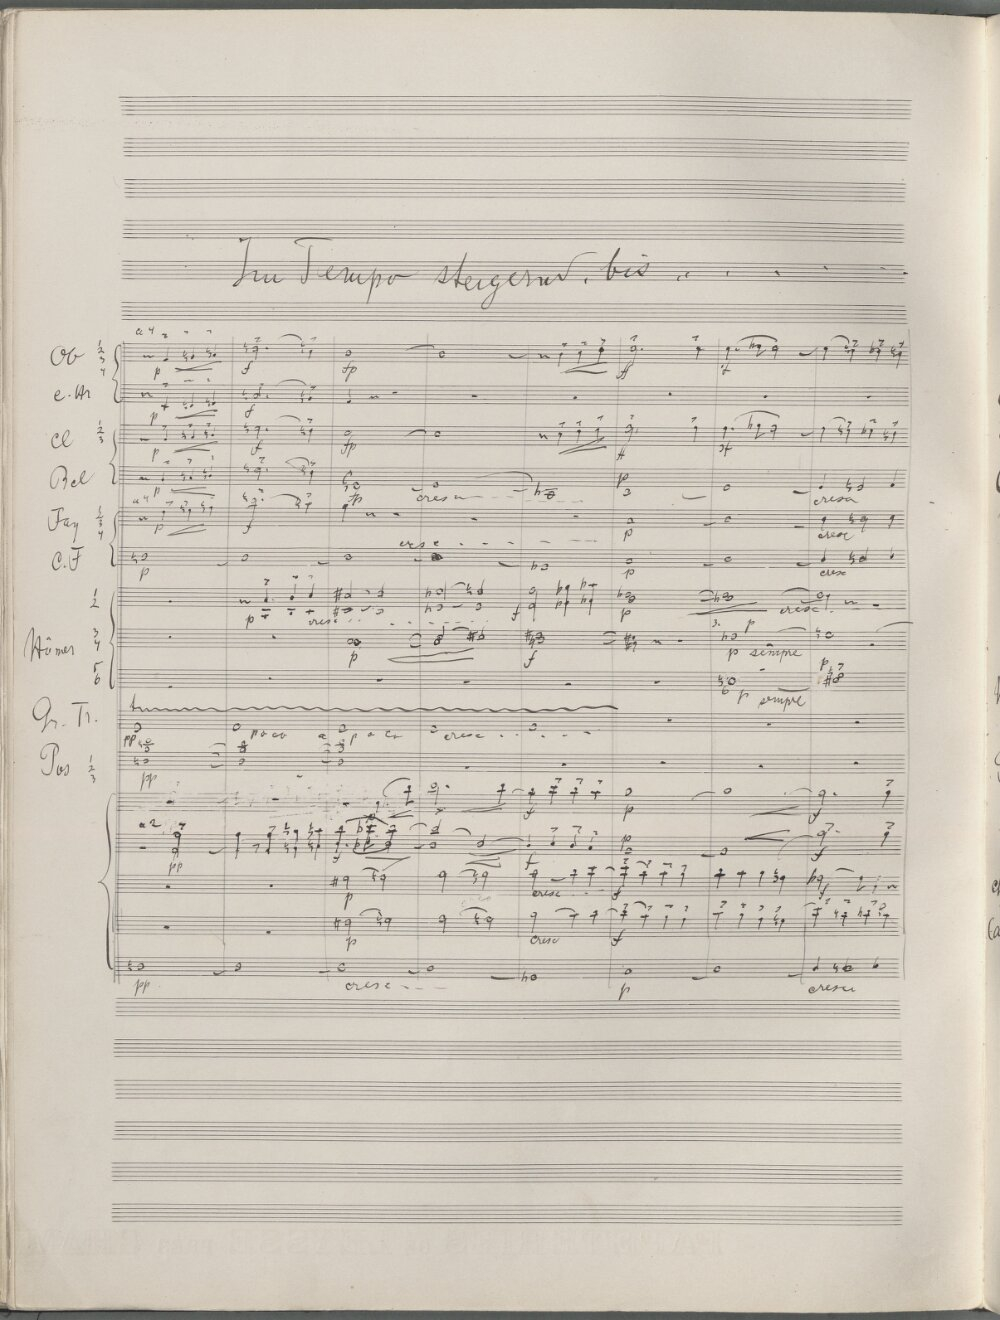 Im Tempo steigernd. bis . . . . . .
a 4
Ob 1 2 3 4
p f fp ff f
e. Hr
p f
Cl 1 2 3
p f fp ff f
Bcl
p fp cresc p cresc
a 4
Fag 1 2 3 4
p f p cresc
C.F
p cresc p cresc
1 2
p cresc f p cresc
Hörner 3 4
p f 3. p p sempre
5 6
p p sempre
Gr. Tr.
pp poco a poco cresc
Pos 1 2 3
pp
f p f
a 2
pp f f p f
p cresc f f
p cresc f
pp cresc p cresc